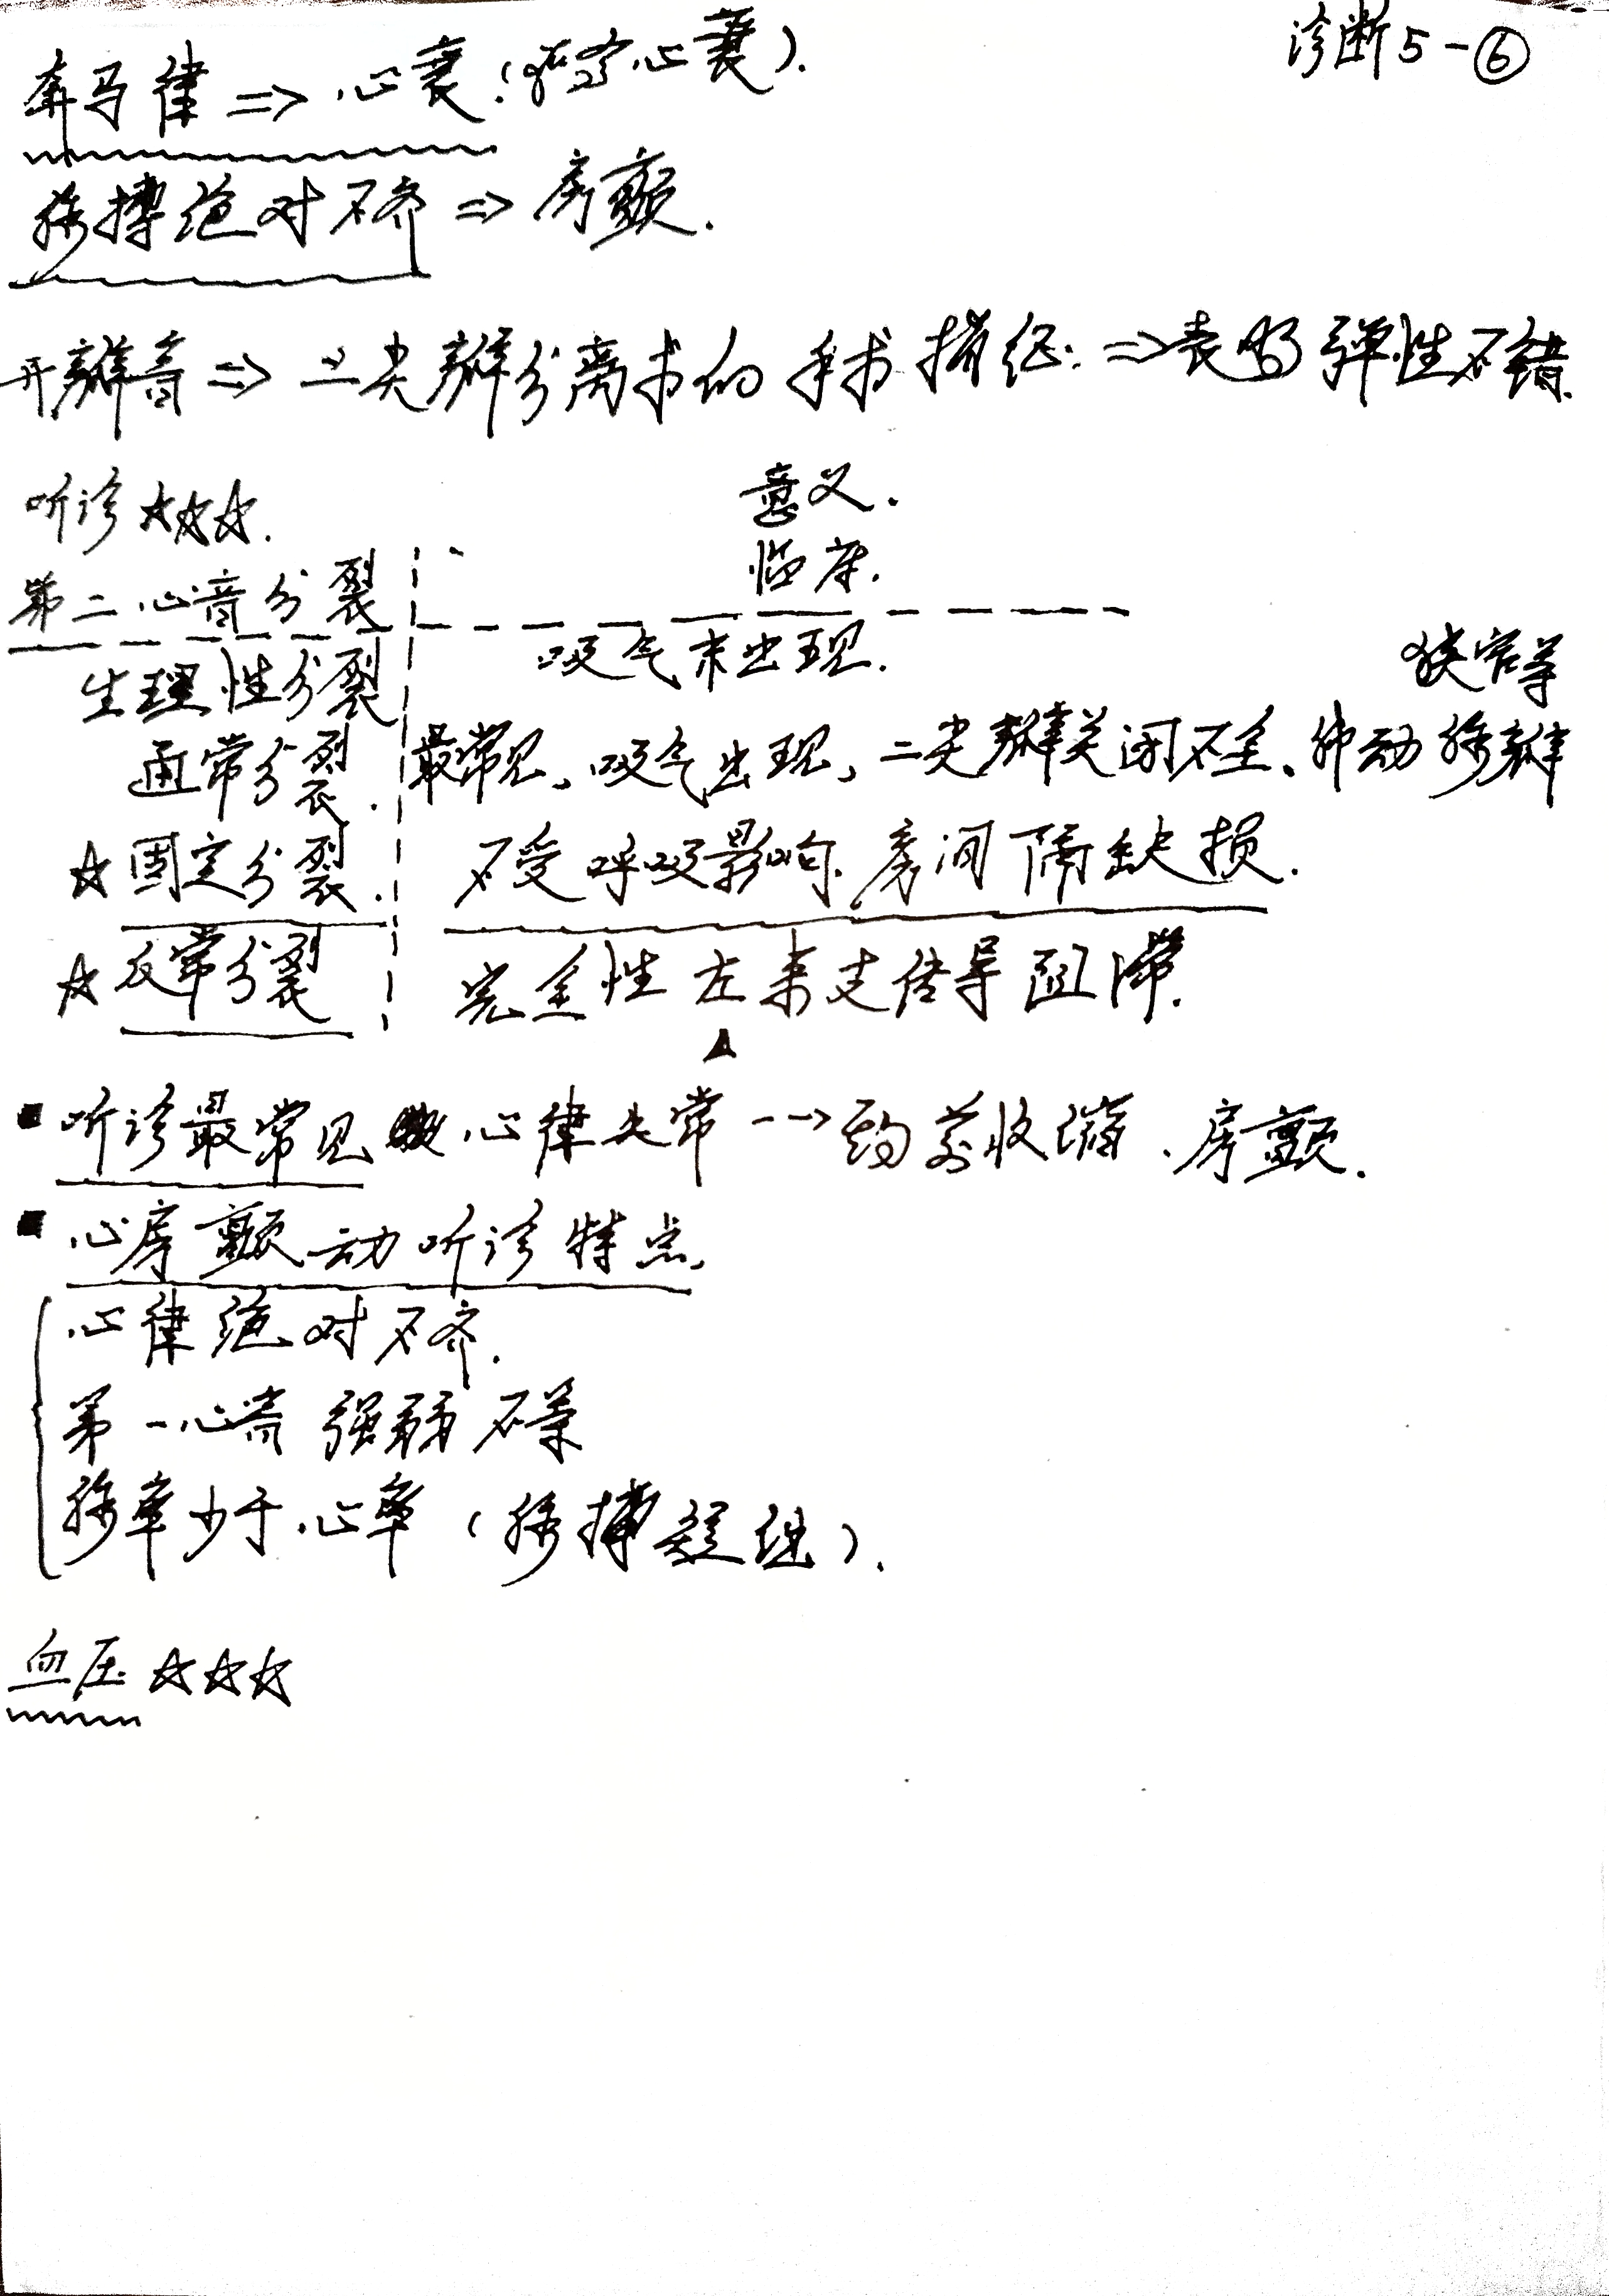 诊断5-⑥
奔马律 => 心衰(左心衰).
脉搏绝对不齐 => 房颤.
开瓣音 => 二尖瓣分离术的手术指征: => 表明弹性不错.
听诊☆☆☆.
意义.
临床.
第二心音分裂
生理性分裂 吸气末出现.
狭窄等
通常分裂. 最常见、吸气出现、二尖瓣关闭不全、肺动脉瓣
☆固定分裂. 不受呼吸影响.房间隔缺损.
☆反常分裂 完全性左束支传导阻滞.
▪听诊最常见 心律失常 --→ 期前收缩、房颤.
▪心房颤动听诊特点、
心律绝对不齐.
第一心音强弱不等
脉率少于心率(脉搏短绌).
血压☆☆☆